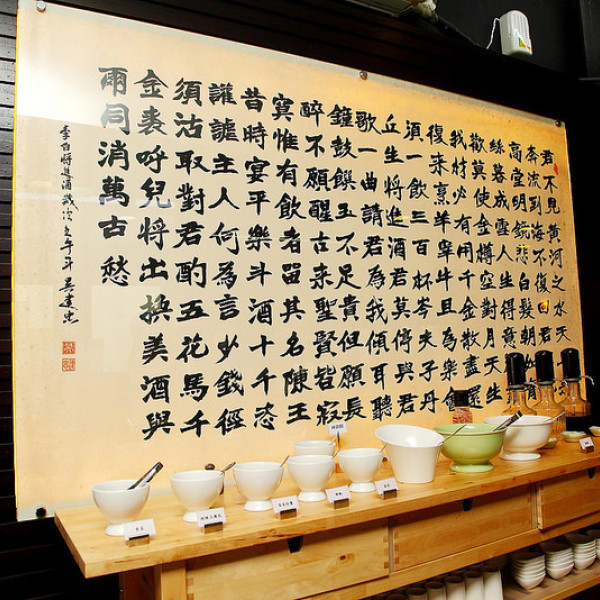 君不見黃河之水天
奔流到海不復回君
高堂明鏡悲白髮朝如
絲暮成雪人生得意
歡莫使金樽空對月天生
我材必有用千金散盡還
復來烹羊宰牛且為樂會
須一飲三百杯岑夫子丹
丘生將進酒君莫停與君
歌一曲請君為我傾耳聽
鐘鼓饌玉不足貴但願長
醉不願醒古來聖賢皆寂
寞惟有飲者留其名陳王
昔時宴平樂斗酒十千恣
讙謔主人何為言少錢徑
須沽取對君酌五花馬千
金裘呼兒將出換美酒與
爾同消萬古愁
李白將進酒歲次